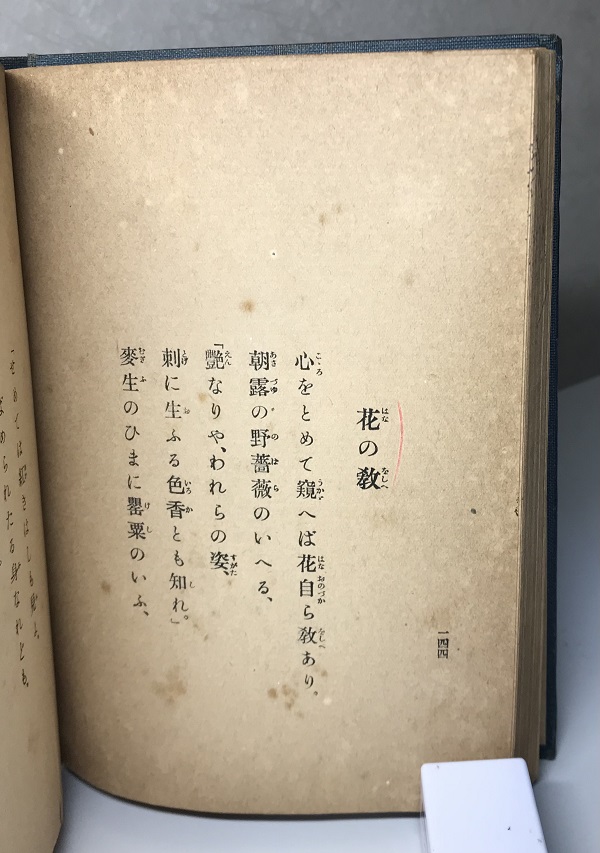 花の敎
心をとめて窺へば花自ら敎あり。
朝露の野薔薇のいへる、
「艷なりや、われらの姿、
刺に生ふる色香とも知れ。」
麥生のひまに罌粟のいふ、
一四四